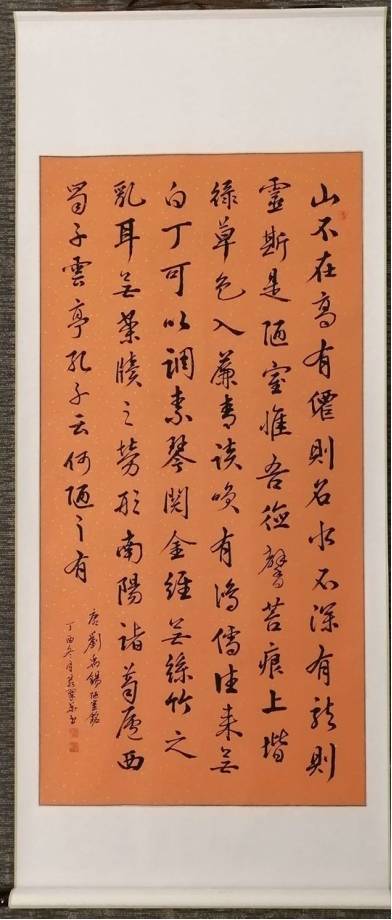 山不在高有僊則名水不深有龍則
靈斯是陋室惟吾德馨苔痕上堦
綠草色入簾青談咲有鴻儒往來無
白丁可以調素琴閱金經無絲竹之
亂耳無案牘之勞形南陽諸葛廬西
蜀子雲亭孔子云何陋之有
唐劉禹錫陋室銘
丁酉冬月書